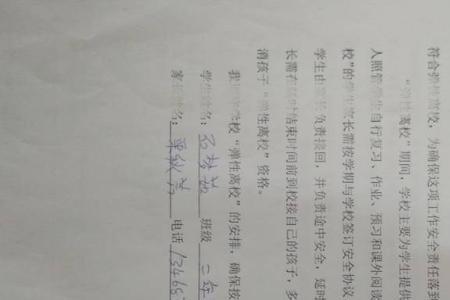 符合弹性离校，为确保这项工作安全责任落到
“弹性离校”期间，学校主要为学生提供
人照管学生自行复习、作业、预习和课外阅读
校”的学生家长需按学期与学校签订安全协议
学生由家长负责接回，并负责途中安全，延时
长需在延时结束时间前到校接自己的孩子，多
消孩子“弹性离校”资格。
我 校“弹性离校”的安排，确保按
学生姓名： 班级 二年
家长姓名： 电话 13468